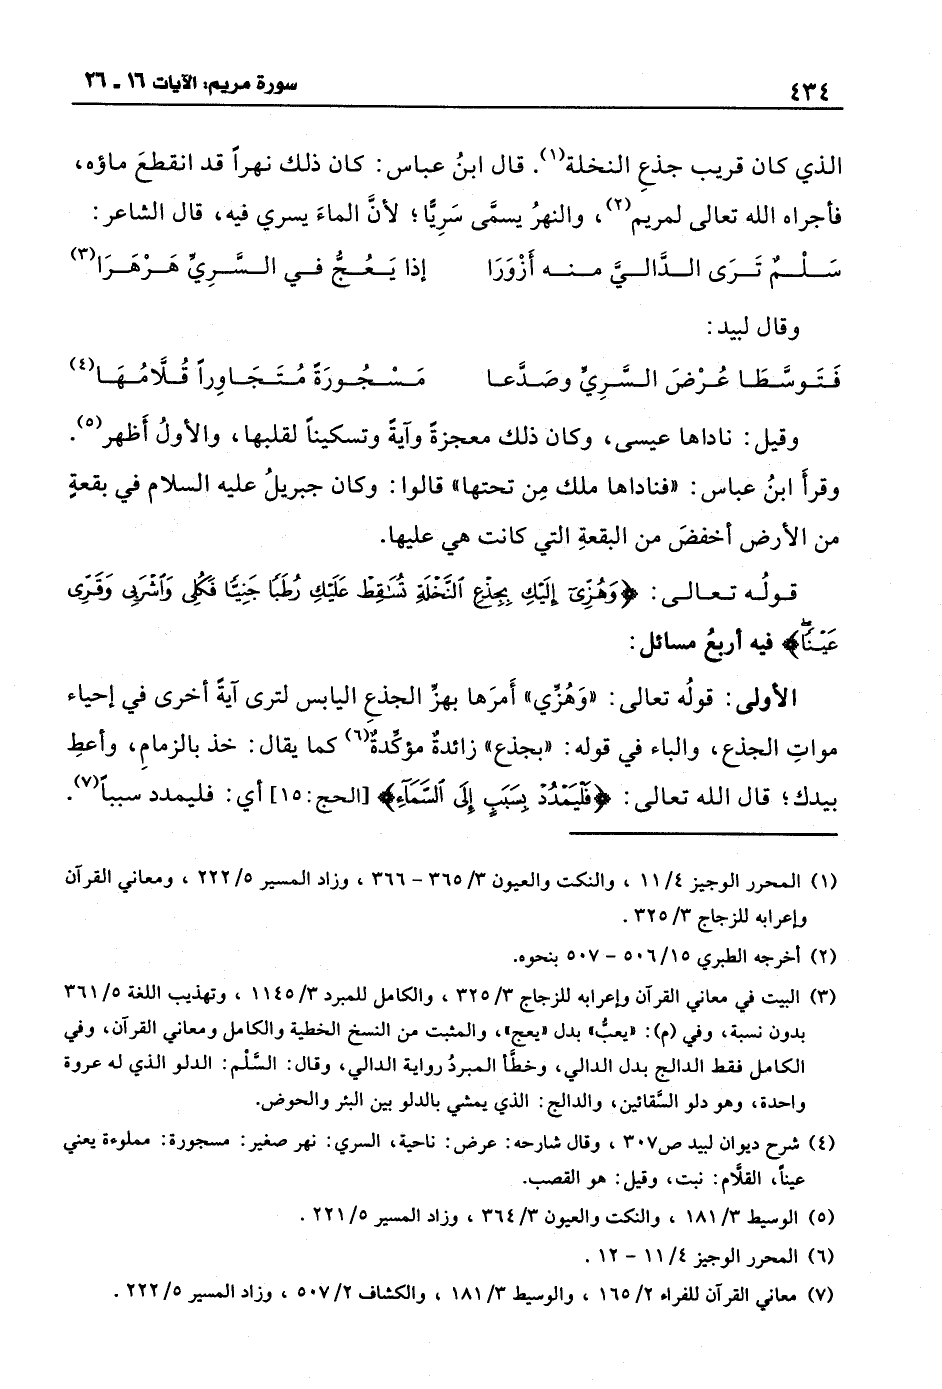 ٤٣٤ سورة مريم: الآيات ١٦ ـ ٢٦
الذي كان قريب جذعِ النخلة(١). قال ابنُ عباس: كان ذلك نهراً قد انقطعَ ماؤه،
فأجراه الله تعالى لمريم(٢)، والنهرُ يسمَّى سَرِيًّا؛ لأنَّ الماءَ يسري فيه، قال الشاعر:
سَـلْـمٌ تَـرَى الـدَّالـيَّ مـنـه أَزْوَرَا إذا يَـعُـجُّ فـي الـسَّـرِيِّ هَـرْهَـرَا(٣)
وقال لبيد:
فَـتَـوسَّـطَـا عُـرْضَ السَّـرِيِّ وصَـدَّعا مَـسْـجُـورَةً مُـتَـجَـاوِراً قُـلَّامُـهَـا(٤)
وقيل: ناداها عيسى، وكان ذلك معجزةً وآيةً وتسكيناً لقلبها، والأولُ أَظهر(٥).
وقرأ ابنُ عباس: «فناداها ملك مِن تحتها» قالوا: وكان جبريلُ عليه السلام في بقعةٍ
من الأرض أخفضَ من البقعةِ التي كانت هي عليها.
قـولُـه تـعـالـى: ﴿وَهُزِّىٓ إِلَيْكِ بِجِذْعِ ٱلنَّخْلَةِ تُسَٰقِطْ عَلَيْكِ رُطَبًا جَنِيًّا فَكُلِى وَٱشْرَبِى وَقَرِّى
عَيْنًاۖ﴾ فيه أربعُ مسائل:
الأولى: قولُه تعالى: «وَهُزِّي» أَمرَها بهزِّ الجذعِ اليابس لترى آيةً أخرى في إحياء
مواتِ الجذع، والباء في قوله: «بجذع» زائدةٌ مؤكِّدةٌ(٦) كما يقال: خذ بالزمامِ، وأعطِ
بيدك؛ قال الله تعالى: ﴿فَلْيَمْدُدْ بِسَبَبٍ إِلَى ٱلسَّمَآءِ﴾ [الحج:١٥] أي: فليمدد سبباً(٧).
(١) المحرر الوجيز ٤/ ١١ ، والنكت والعيون ٣/ ٣٦٥ - ٣٦٦ ، وزاد المسير ٥/ ٢٢٢ ، ومعاني القرآن
وإعرابه للزجاج ٣/ ٣٢٥ .
(٢) أخرجه الطبري ١٥/ ٥٠٦ - ٥٠٧ بنحوه.
(٣) البيت في معاني القرآن وإعرابه للزجاج ٣/ ٣٢٥ ، والكامل للمبرد ٣/ ١١٤٥ ، وتهذيب اللغة ٥/ ٣٦١
بدون نسبة، وفي (م): «يعبُّ» بدل «يعج»، والمثبت من النسخ الخطية والكامل ومعاني القرآن، وفي
الكامل فقط الدالج بدل الدالي، وخطَّأ المبردُ رواية الدالي، وقال: السَّلْم: الدلو الذي له عروة
واحدة، وهو دلو السَّقائين، والدالج: الذي يمشي بالدلو بين البئر والحوض.
(٤) شرح ديوان لبيد ص٣٠٧ ، وقال شارحه: عرض: ناحية، السري: نهر صغير: مسجورة: مملوءة يعني
عيناً، القلَّام: نبت، وقيل: هو القصب.
(٥) الوسيط ٣/ ١٨١ ، والنكت والعيون ٣/ ٣٦٤ ، وزاد المسير ٥/ ٢٢١ .
(٦) المحرر الوجيز ٤/ ١١ - ١٢ .
(٧) معاني القرآن للفراء ٢/ ١٦٥ ، والوسيط ٣/ ١٨١ ، والكشاف ٢/ ٥٠٧ ، وزاد المسير ٥/ ٢٢٢ .